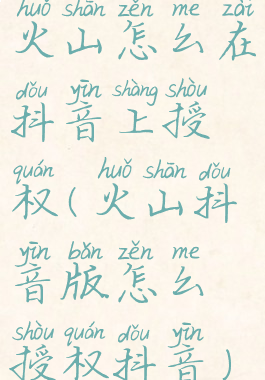 huǒ shān zěn me zài
火山怎么在
dǒu yīn shàng shòu
抖音上授
quán huǒ shān dǒu
权(火山抖
yīn bǎn zěn me
音版怎么
shòu quán dǒu yīn
授权抖音)